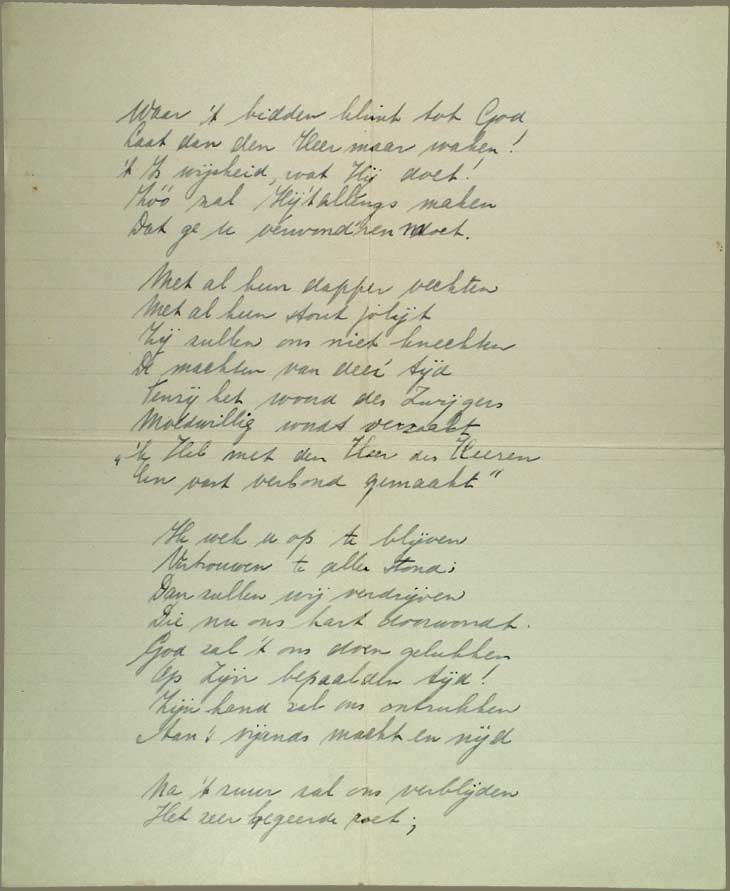 Waar 't bidden klimt tot God
Laat dan den Heer maar waken!
't Is wijsheid, wat Hij doet!
Zóó zal Hij 't allengs maken
Dat ge u verwond'ren moet.
Met al hun dapper vechten
Met al hun stout jolijt
Zij zullen ons niet knechten
De machten van deez' tijd
Tenzij het woord des Zwijgers
Moedwillig wordt verzaakt
„'k Heb met den Heer der Heeren
Een vast verbond gemaakt"
Ik wek u op te blijven
Vertrouwen te aller stond;
Dan zullen wij verdrijven
Die nu ons hart doorwondt.
God zal 't ons doen gelukken
Op Zijn bepaalden tijd!
Zijn hand zal ons ontrukken
Aan 's vijands macht en nijd
Na 't zuur zal ons verblijden
Het zeer begeerde zoet;